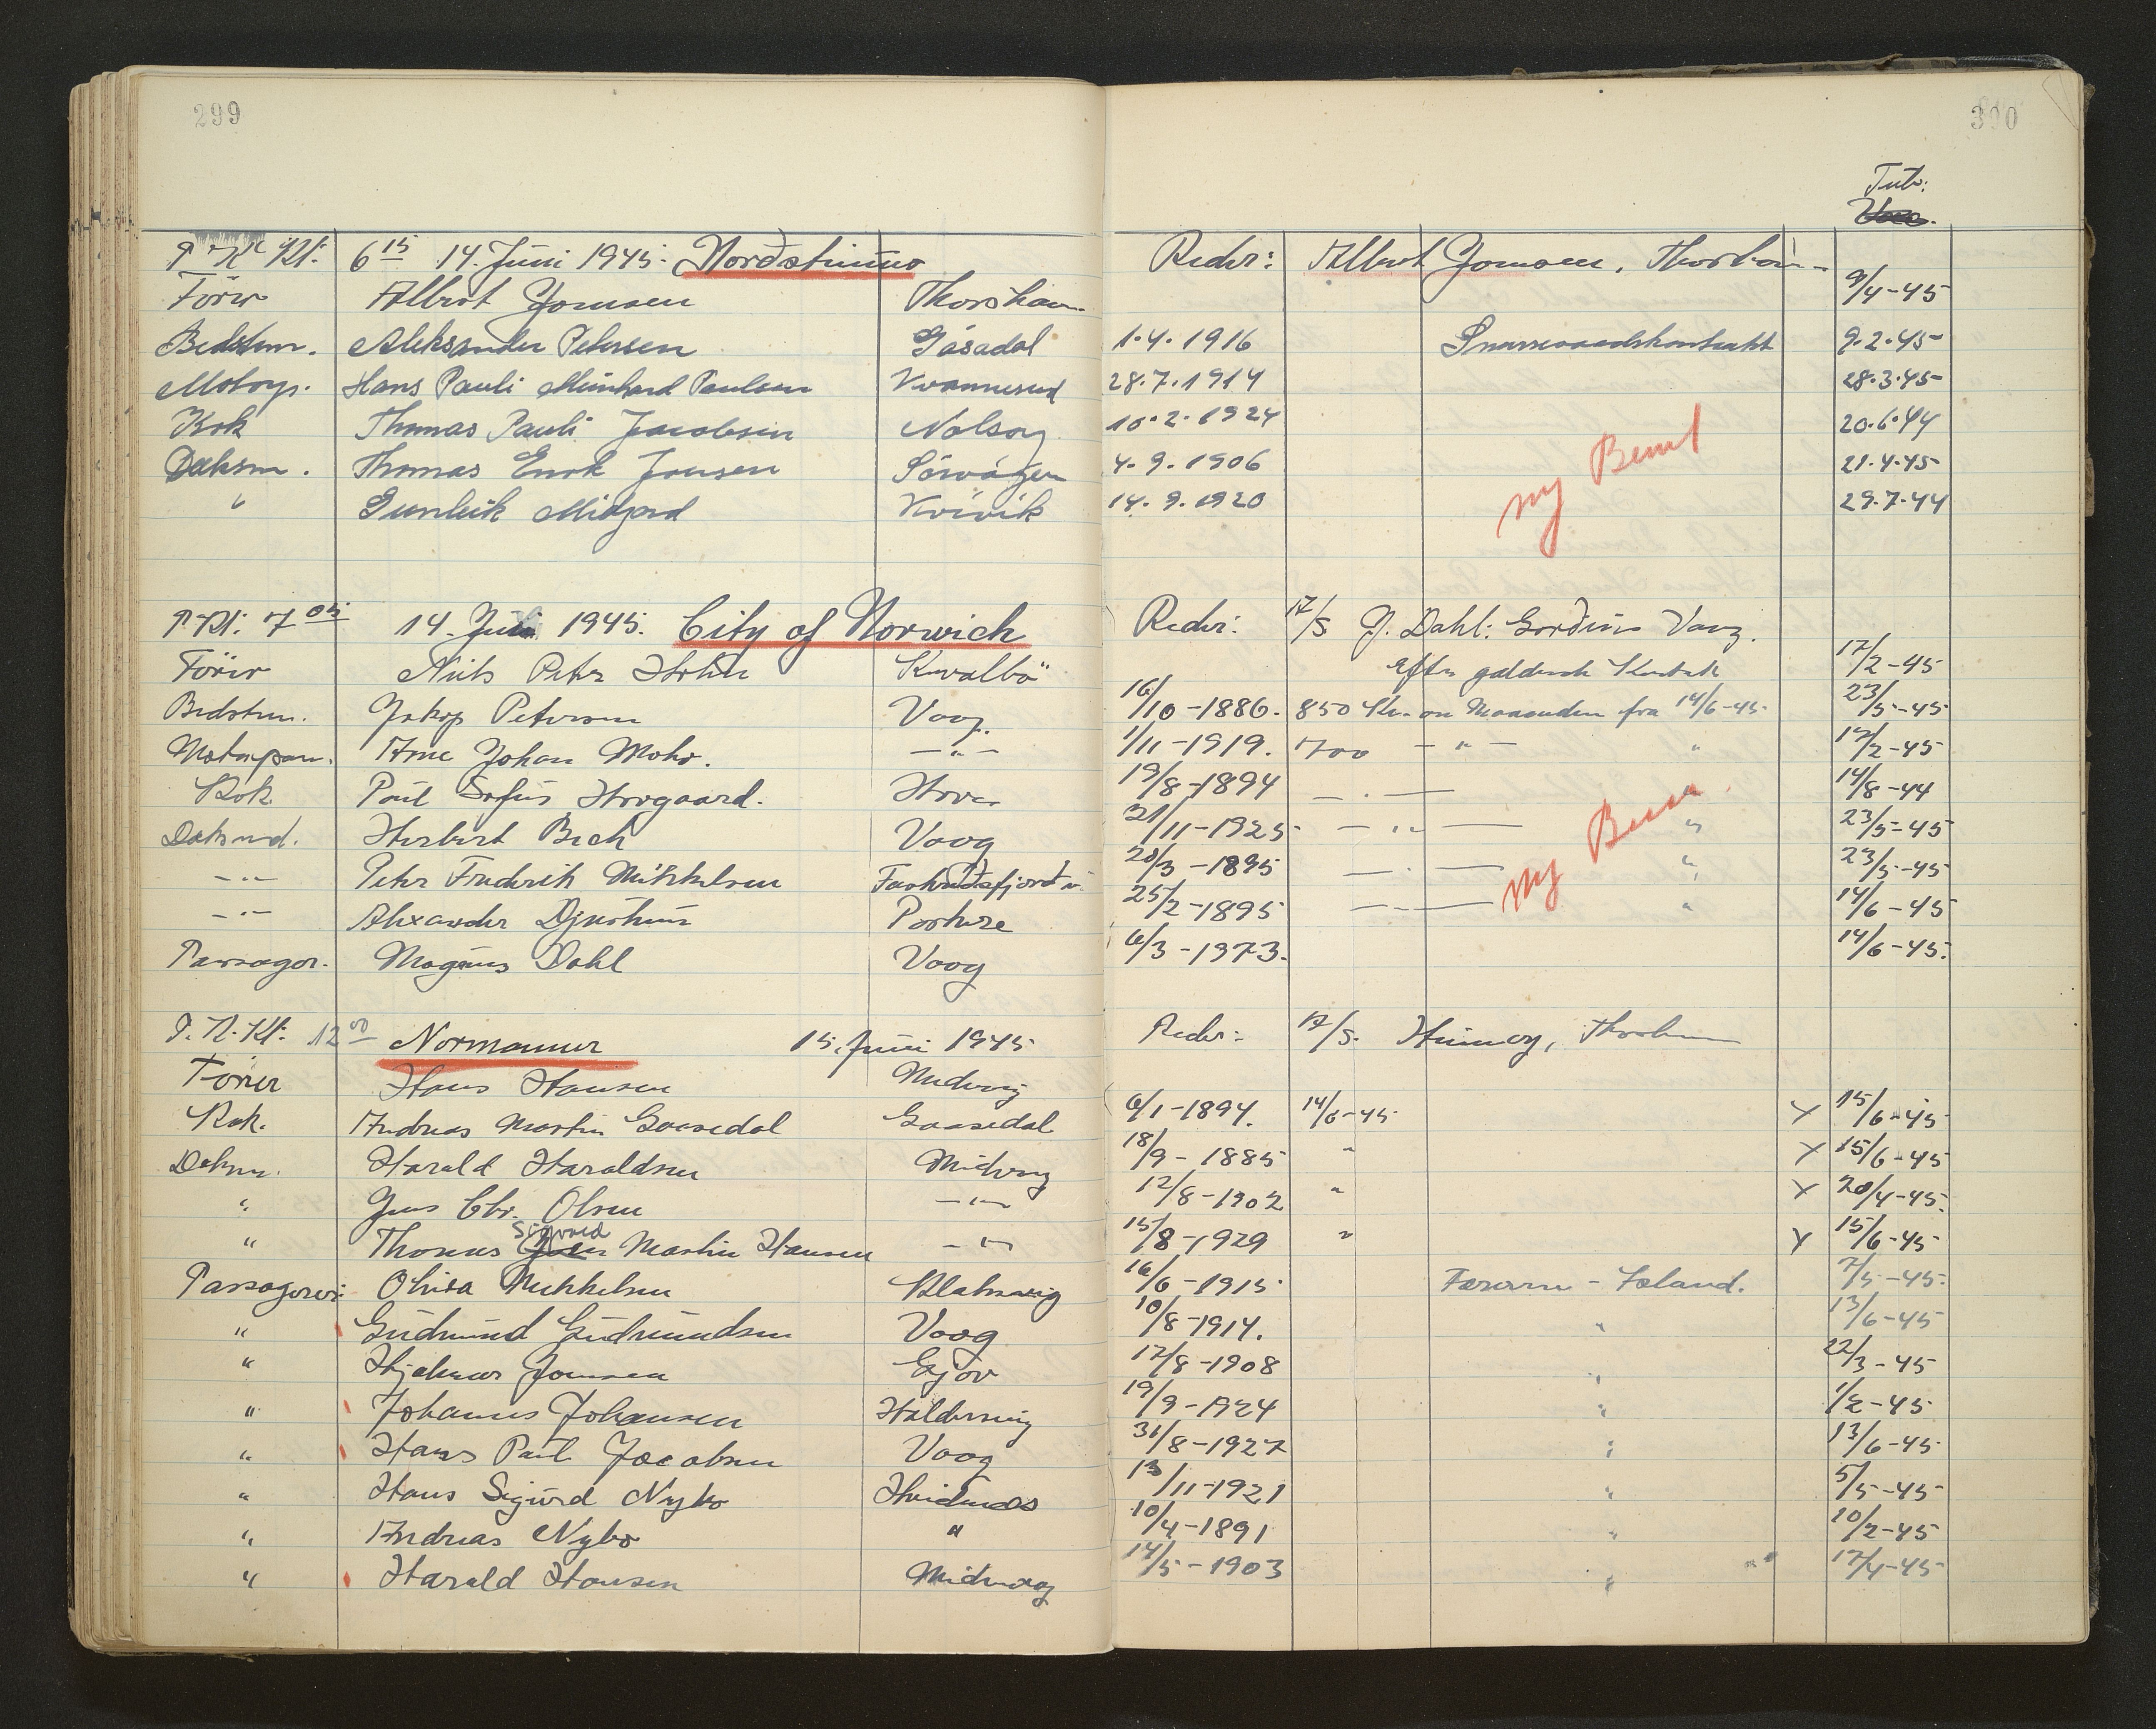 299
300
Tub:
P. K. Kl. 6 15 14. Juni 1945. Norðstjuno Redr: Albert Joensen, Thorshavn
Förer Albert Joensen Thorshavn 9/4-45
Bedstem. Aleksander Petersen Gásadal 1.4.1916 9.2.45
Motorp. Hans Pauli Meinhard Paulsen Kvannesund 28.7.1914 28.3.45
Kok Thomas Pauli Jacobsen Nolsoy 10.2.1924 20.6.44
Daksm. Thomas Enok Joensen Sörvágen 4.9.1906 21.4.45
" Gunleik Midjord Kvívik 14.9.1920 29.7.44
ny Bem
P. Kl. 7 05 14. Juni 1945. City of Norwich Redr: A/S J. Dahl: Vaag.
Förer Niels Peter Holm Kvalbö Efter gældende Kontrakt 17/2-45
Bedstem. Jakop Petersen Vaag. 16/10-1886. 850 Kr. om Maaneden fra 14/6-45 23/5-45
Motorpas. Arne Johan Mohr. -"- 1/11-1919. 700 -"- " 19/2-45
Kok Poul Sofus Hovgaard. Hove 19/8-1894 -"- " 14/8-44
Daksmd. Herbert Bech Vaag 21/11-1925 -"- " 23/5-45
-"- Peter Frederik Mikkelsen 20/3-1895 -"- " 23/5-45
-"- Alexander Djurhuus Porkere 25/2-1895 -"- " 14/6-45
Passager. Magnus Dahl Vaag 6/3-1973. 14/6-45.
ny Bem
P. K. Kl. 12 00 Normanner 15. Juni 1945 Redr: A/S. Thorshavn
Förer Hans Hansen Midvaag
Kok. Andreas Martin Gaasedal Gaasedal 6/1-1894. 14/6-45 x 15/6-45
Daksm. Harald Haraldsen Midvaag 18/9-1885 " x 15/6-45
" Jens Chr. Olsen -"- 12/8-1902 " x 20/4-45.
" Thomas Sigvald Martin Hansen -"- 15/8-1929 " x 15/6-45
Passagerer: Olivia Mikkelsen Klaksvig 16/6-1915 Færöerne - Island. 7/5-45
" Gudmund Gudmundsen Vaag 10/8-1914. " 13/6-45
" Hjalmar Joensen Gjov 17/8-1908 " 22/3-45
" Johannes Johansen Haldersvig 19/9-1924 " 1/2-45
" Hans Paul Jacobsen Vaag 31/8-1927 " 13/6-45
" Hans Sigurd Nybo Hvidenæs 13/11-1921 " 5/5-45
" Andreas Nybo " 10/4-1891 " 10/2-45
" Harald Hansen Midvaag 14/5-1903 " 17/4-45